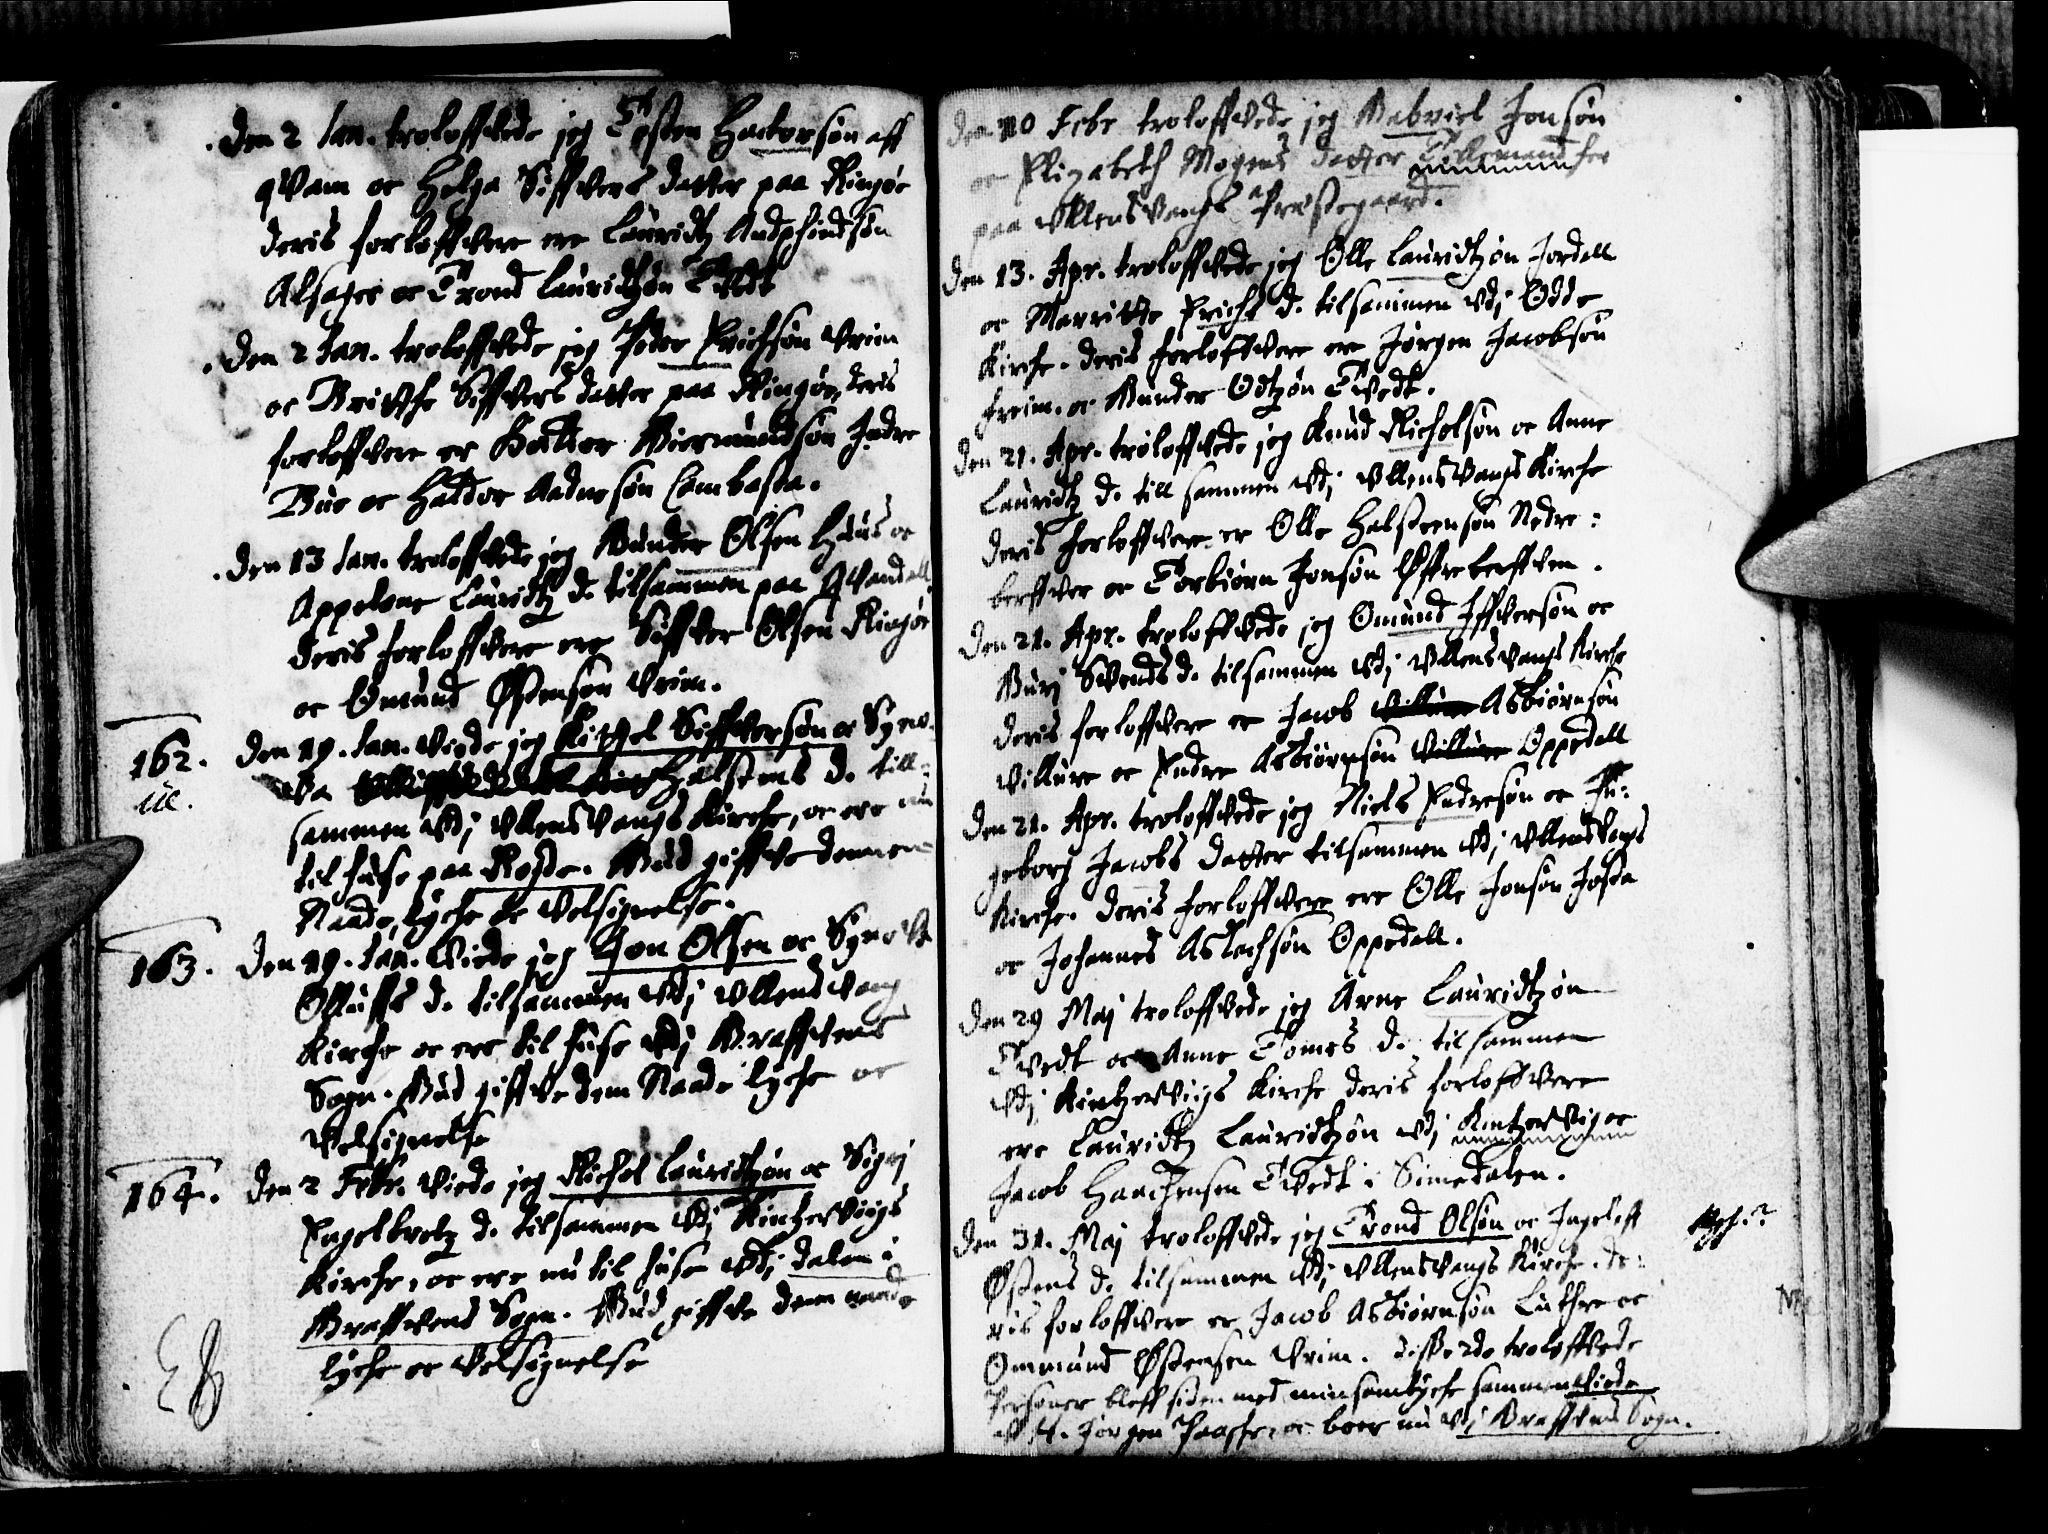 Den 2 Jan. troloffvede jeg Tosten Hactorsøn aff
qvam oc Helga Siffvers datter paa Ringøe
deris forloffvere ere Lauridtz Andphindsøn
Alsager oc Trond Lauridtzøn Tvedt
Den 2 Jan. troloffvede jeg Peder Erichsøn Vriim
oc Britthe Siffvers datter paa Ringøe, deris
forloffvere er Gottor Giermundsøn Indre
Bue oc Haldor Aadnesøn Lambasta.
Den 13 Jan. troloffvede jeg Gunder Olsen Huus oc
Appelone Lauridtz d. tilsammen paa Qvandall
deris forloffvere ere Siffver Olsen Ringøe
oc Omund Østensøn Vriim.
162. Den 19. Jan. viede jeg Kittel Siffversøn oc Synne-
va Halstens d. till-
sammen udj Ullensvangs Kirche, oc ere nu
til huse paa Rosde. Gud giffve dennem
Naade, lyche oc Velsignelse.
163. Den 19. Jan. Viede jeg Jon Olsen oc Synøve
Olluffs d. tilsammen udj Ullensvang
Kirche oc ere til huse udj Graffvens
Sogn. Gud giffve dem Naade lyche oc
Velsignelse
164. Den 2 Febr. viede jeg Michel Lauridtzøn oc Sigrj
Engelbretz d. tilsammen udj Kintzerviigs
Kirche, oc ere nu til huse udj dalen i
Graffvens Sogn. Gud giffve dem naade
lyche oc Velsignelse
Den 10 Febr troloffvede jeg Gabriel Jonsøn
oc Elizabeth Mogens datter Tillemand her
paa Ullensvangs Præstegaard.
Den 13. Apr. troloffvede jeg Olle Lauridtzøn Jordall
oc Marritte Erichs d. tilsammen udj Odde
Kirche. deris forloffvere ere Jørgen Jacobsøn
Freim. oc Gunder Odtzøn Tvedt.
Den 21. Apr. troloffvede jeg Knud Michelsøn oc Anne
Lauridtz d. till sammen udj Ullensvangs Kirche
deris forloffvere er Olle Halsteensøn Nedre-
berffven oc Torbiørn Jonsøn Øffreberffven.
Den 21. Apr. troloffvede jeg Omund Iffversøn oc
Gurj Svends d. tilsammen udj Ullensvangs Kirche
deris forloffvere er Jacob Asbiørnsøn
Villure oc Endre Asbiørnsøn Oppedall
Den 21. Apr. troloffvede jeg Niels Endresøn oc In-
geborg Jacobs datter tilsammen udj Ullensvangs
Kirche. deris forloffvere ere Olle Jonsøn Josda
oc Johannes Aslachsøn Oppedall.
Den 29 Maj troloffvede jeg Arne Lauridtzøn
Tvedt oc Anne Tomes d. tilsammen
udj Kintzerviigs Kirche deris forloffvere
ere Lauridtz Lauridtzøn udj Kintzervig oc
Jacob Haachensen Tvedt i Simedalen.
Den 31. Maj troloffvede jeg Trond Olsøn oc Ingeleff
Østens d. tilsammen udj Ullensvangs Kirche. de-
ris forloffvere er Jacob Asbiørnsøn Luthre oc
Ommund Østensen Vriim. disse 2de troloffvede
Personer bleff siden med min samtyche sammenviede
aff H. Jørgen Paasche, oc boer nu udj Graffvens Sogn.